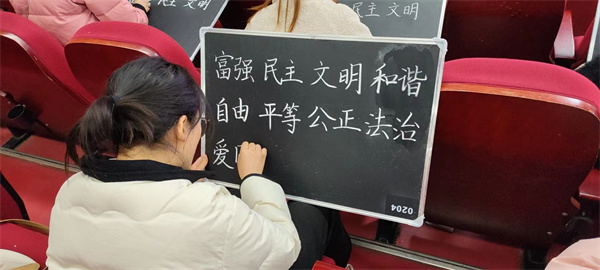 民主 文明
民主 文明
富强 民主 文明 和谐
自由 平等 公正 法治
爱
0204